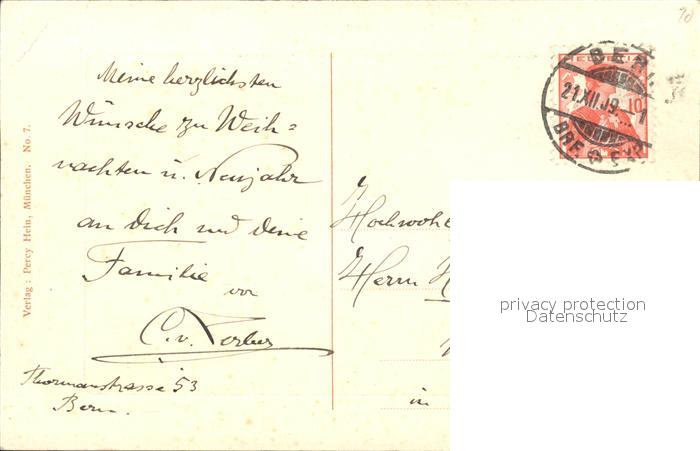 Meine herzlichsten
Wünsche zu Weih=
nachten u. Neujahr
an Dich und Deine
Familie
von
C. v.
Thormannstrasse 53
Bern.
Verlag: Percy Hein, München. No. 7.
HELVETIA
10
BERN
21.XII.09. 1
BRF.
Hochwohl
Herrn
in
privacy protection
Datenschutz